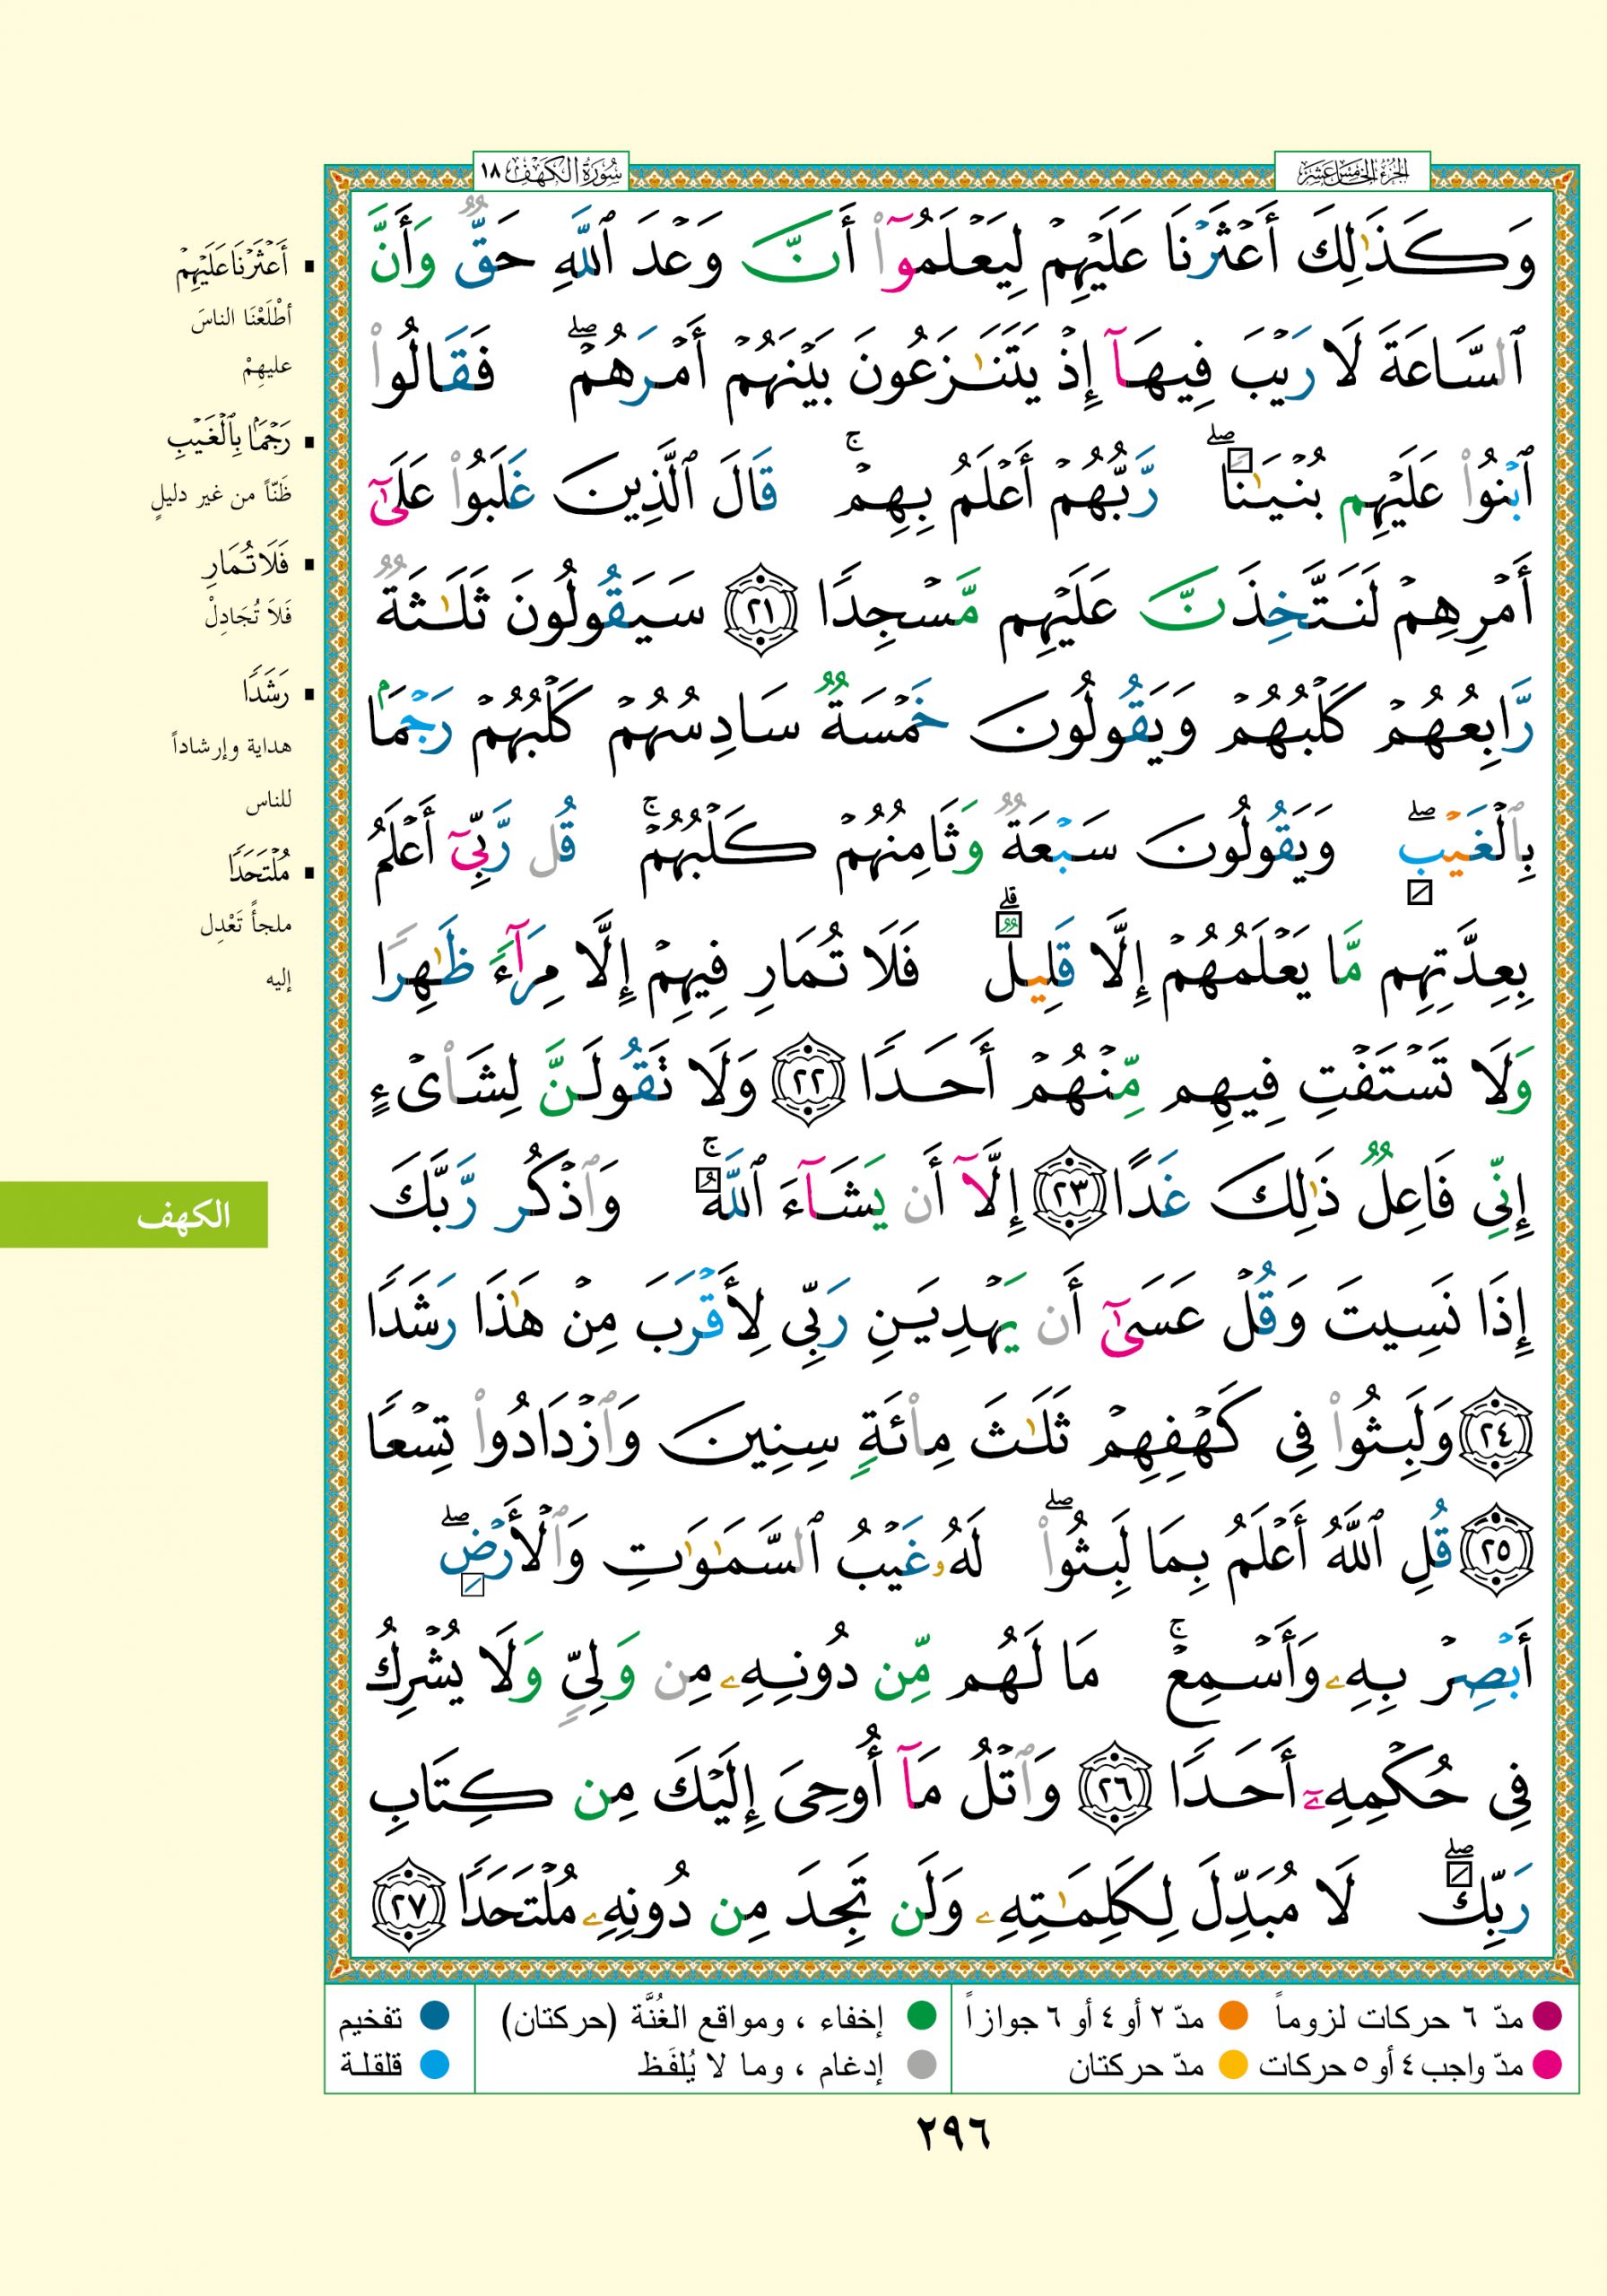 الجزء الخامس عشر
سورة الكهف ١٨
وَكَذَٰلِكَ أَعْثَرْنَا عَلَيْهِمْ لِيَعْلَمُوٓا۟ أَنَّ وَعْدَ ٱللَّهِ حَقٌّ وَأَنَّ
ٱلسَّاعَةَ لَا رَيْبَ فِيهَآ إِذْ يَتَنَـٰزَعُونَ بَيْنَهُمْ أَمْرَهُمْ ۖ فَقَالُوا۟
ٱبْنُوا۟ عَلَيْهِم بُنْيَـٰنًا ۖ رَّبُّهُمْ أَعْلَمُ بِهِمْ ۚ قَالَ ٱلَّذِينَ غَلَبُوا۟ عَلَىٰٓ
أَمْرِهِمْ لَنَتَّخِذَنَّ عَلَيْهِم مَّسْجِدًا ٢١ سَيَقُولُونَ ثَلَـٰثَةٌ
رَّابِعُهُمْ كَلْبُهُمْ وَيَقُولُونَ خَمْسَةٌ سَادِسُهُمْ كَلْبُهُمْ رَجْمًۢا
بِٱلْغَيْبِ ۖ وَيَقُولُونَ سَبْعَةٌ وَثَامِنُهُمْ كَلْبُهُمْ ۚ قُل رَّبِّىٓ أَعْلَمُ
بِعِدَّتِهِم مَّا يَعْلَمُهُمْ إِلَّا قَلِيلٌ ۗ فَلَا تُمَارِ فِيهِمْ إِلَّا مِرَآءً ظَـٰهِرًا
وَلَا تَسْتَفْتِ فِيهِم مِّنْهُمْ أَحَدًا ٢٢ وَلَا تَقُولَنَّ لِشَا۟ىْءٍ
إِنِّى فَاعِلٌ ذَٰلِكَ غَدًا ٢٣ إِلَّآ أَن يَشَآءَ ٱللَّهُ ۚ وَٱذْكُر رَّبَّكَ
إِذَا نَسِيتَ وَقُلْ عَسَىٰٓ أَن يَهْدِيَنِ رَبِّى لِأَقْرَبَ مِنْ هَـٰذَا رَشَدًا
٢٤ وَلَبِثُوا۟ فِى كَهْفِهِمْ ثَلَـٰثَ مِا۟ئَةٍ سِنِينَ وَٱزْدَادُوا۟ تِسْعًا
٢٥ قُلِ ٱللَّهُ أَعْلَمُ بِمَا لَبِثُوا۟ ۖ لَهُۥ غَيْبُ ٱلسَّمَـٰوَٰتِ وَٱلْأَرْضِ ۖ
أَبْصِرْ بِهِۦ وَأَسْمِعْ ۚ مَا لَهُم مِّن دُونِهِۦ مِن وَلِىٍّ وَلَا يُشْرِكُ
فِى حُكْمِهِۦٓ أَحَدًا ٢٦ وَٱتْلُ مَآ أُوحِىَ إِلَيْكَ مِن كِتَابِ
رَبِّكَ ۖ لَا مُبَدِّلَ لِكَلِمَـٰتِهِۦ وَلَن تَجِدَ مِن دُونِهِۦ مُلْتَحَدًا ٢٧
▪ أَعْثَرْنَا عَلَيْهِمْ
أطْلَعْنَا الناسَ
عليهِمْ
▪ رَجْمًۢا بِٱلْغَيْبِ
ظَنّاً من غير دليلٍ
▪ فَلَا تُمَارِ
فَلاَ تُجَادِلْ
▪ رَشَدًا
هداية وإرشاداً
للناس
▪ مُلْتَحَدًا
ملجأً تَعْدِل
إليه
الكهف
مدّ ٦ حركات لزوماً مدّ ٢ أو ٤ أو ٦ جوازاً
مدّ واجب ٤ أو ٥ حركات مدّ حركتان
إخفاء ، ومواقع الغُنَّة (حركتان)
إدغام ، وما لا يُلفَظ
تفخيم
قلقلة
٢٩٦